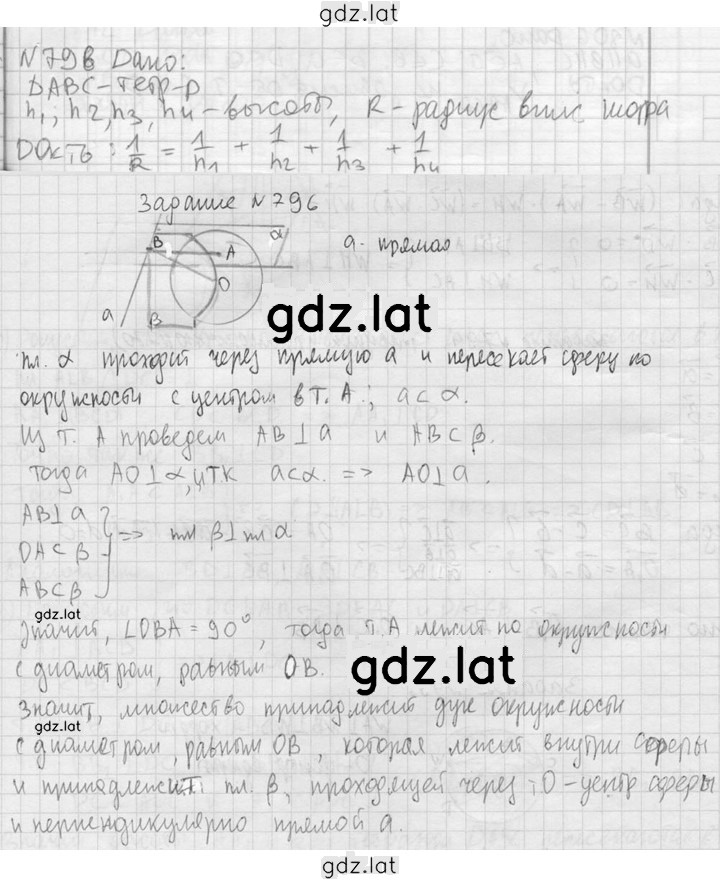 gdz.lat
N798 Дано:
DABC-тетр-р
h1; h2, h3, h4 - высоты, R - радиус впис шара
Док-ть: 1/R = 1/h1 + 1/h2 + 1/h3 + 1/h4
Задание N796
В А α
O
a
B
a - прямая
gdz.lat
пл. α проходит через прямую a и пересекает сферу по
окружности с центром в т. А.; a⊂α.
Из т. А проведем АВ⊥a и АВ⊂β.
тогда АО⊥α, и т.к a⊂α. => АО⊥a.
АВ⊥a
ОА⊂β => пл β⊥пл α
АВ⊂β
gdz.lat
Значит, ∠OBA = 90°, тогда т. А лежит по окружности
с диаметром, равным ОВ.
gdz.lat
Значит, множество принадлежит дуге окружности
с диаметром, равным ОВ, которая лежит внутри сферы
и принадлежит пл. β, проходящей через, O-центр сферы
и перпендикулярно прямой a.
gdz.lat